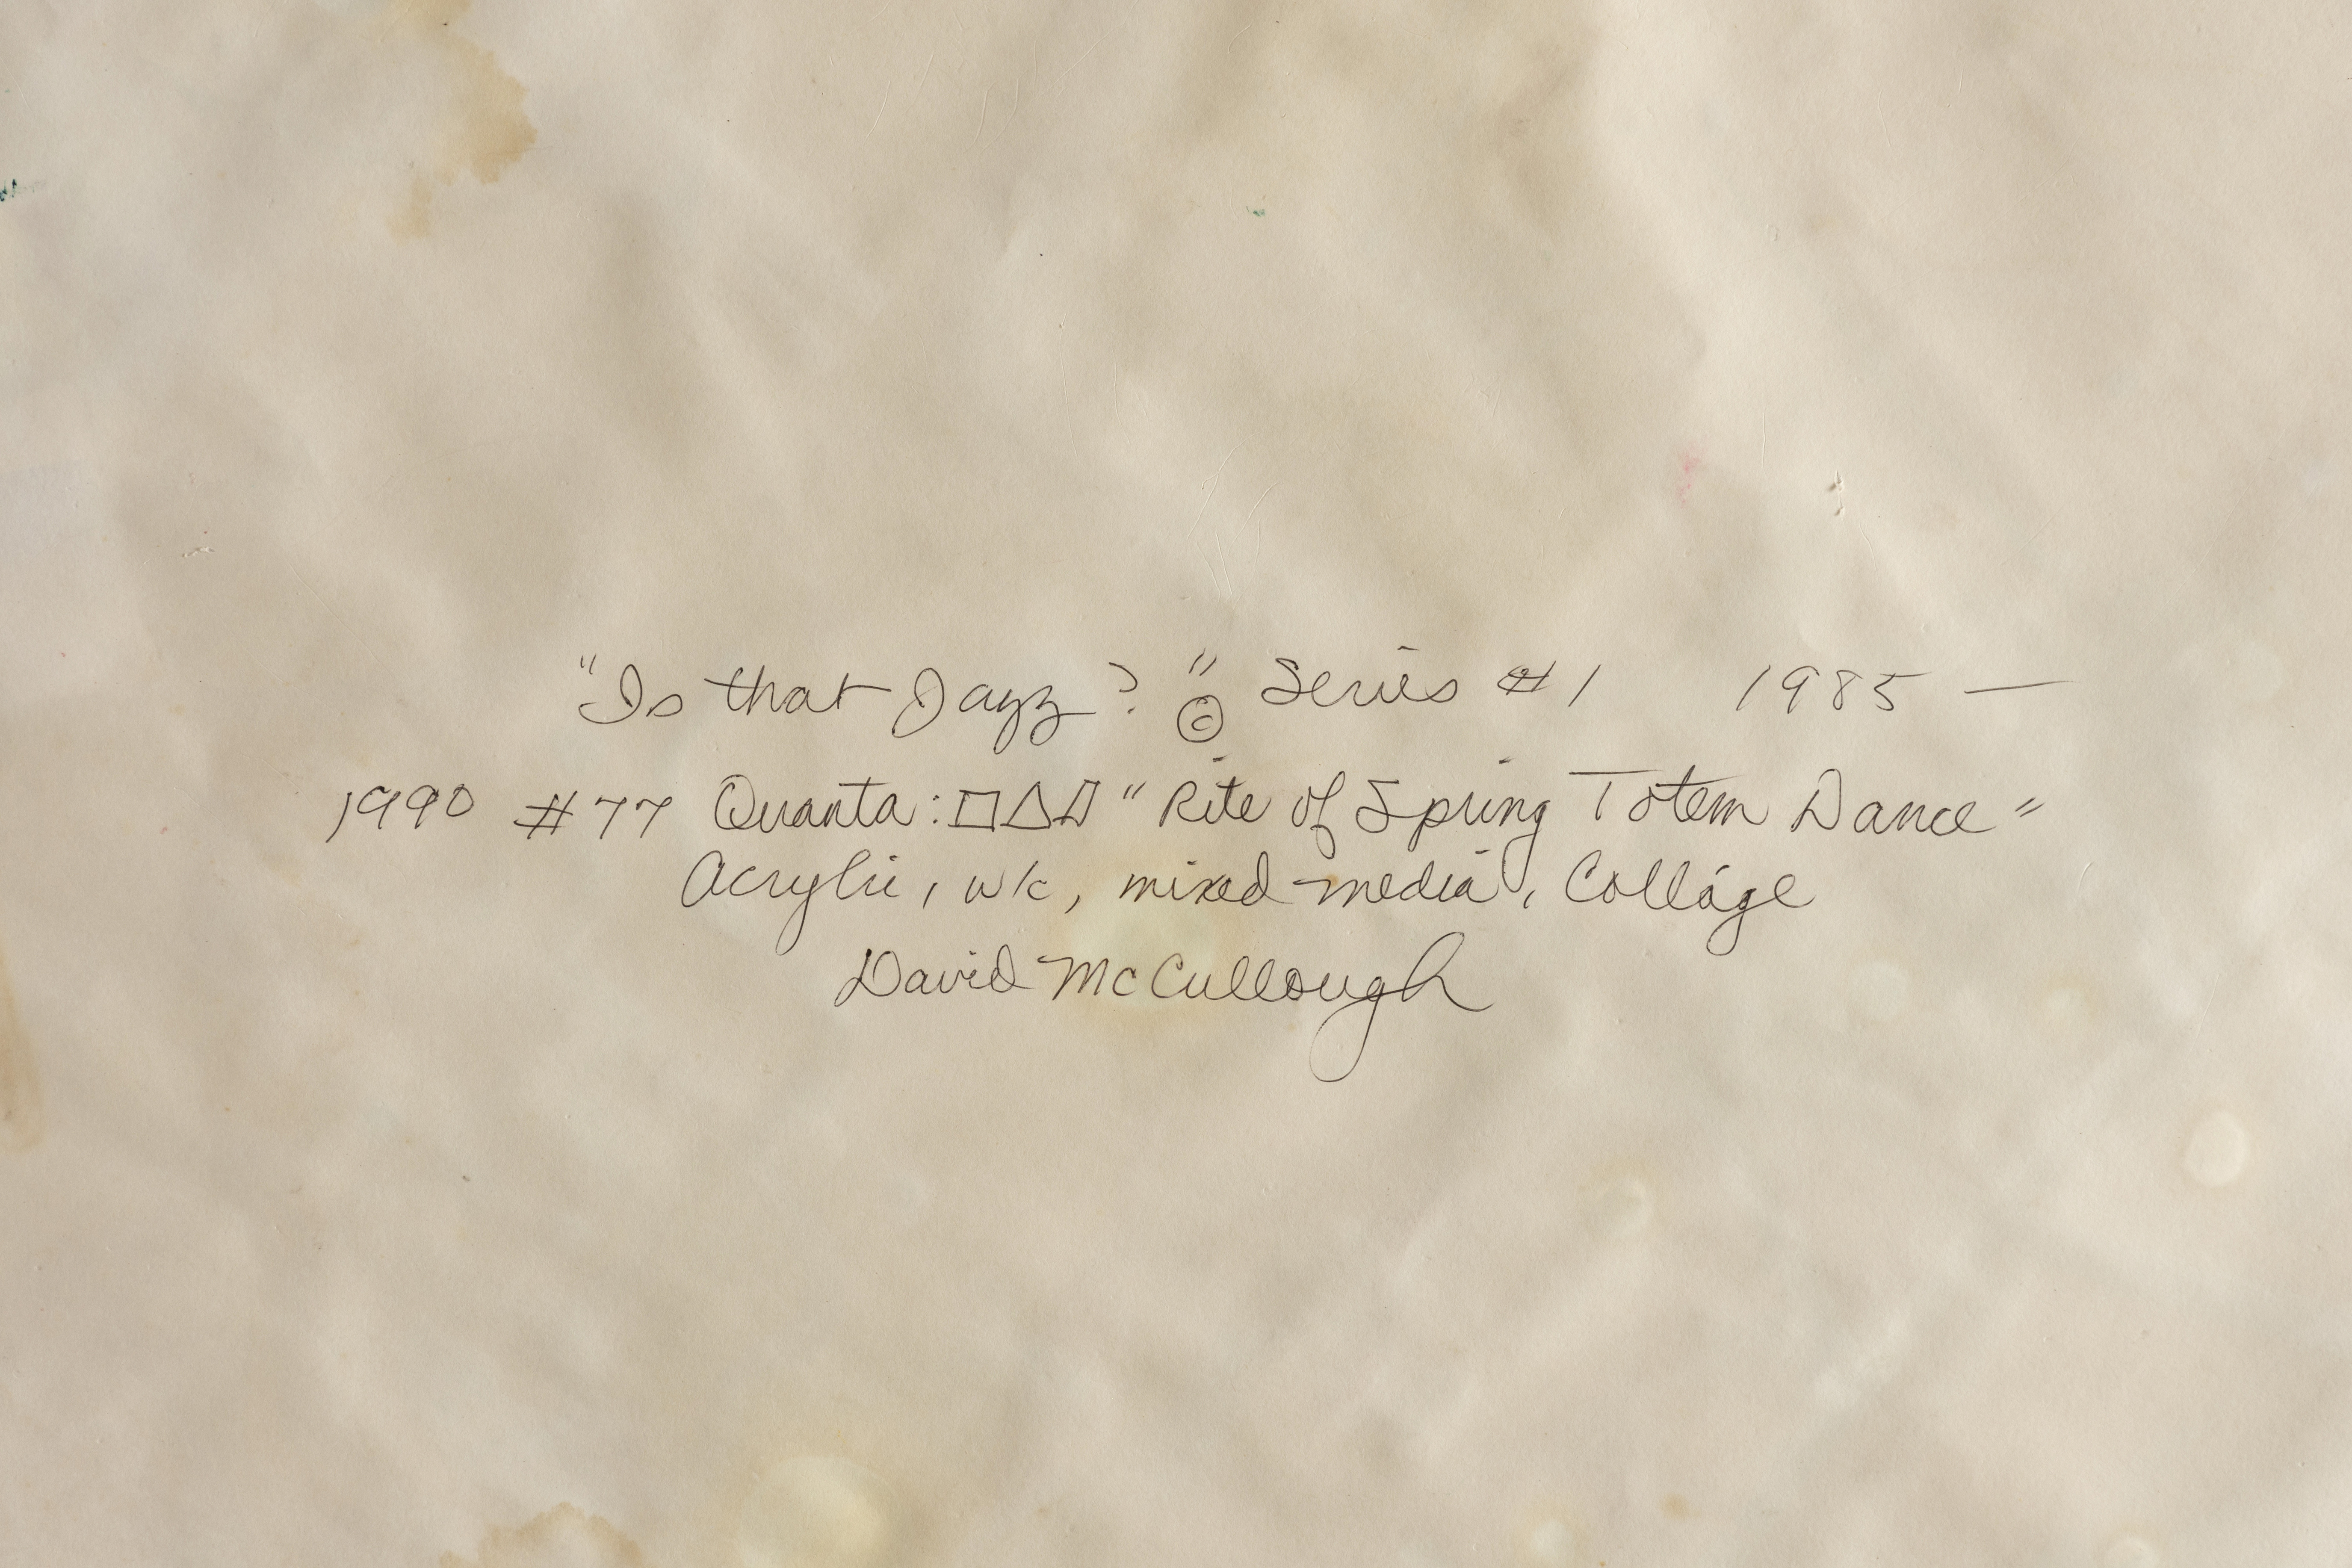 "Is that Jazz?" © Series #1 1985 —
1990 #77 Quanta: □△▱ "Rite of Spring Totem Dance"
Acrylic, mixed media, Collage
David McCullough